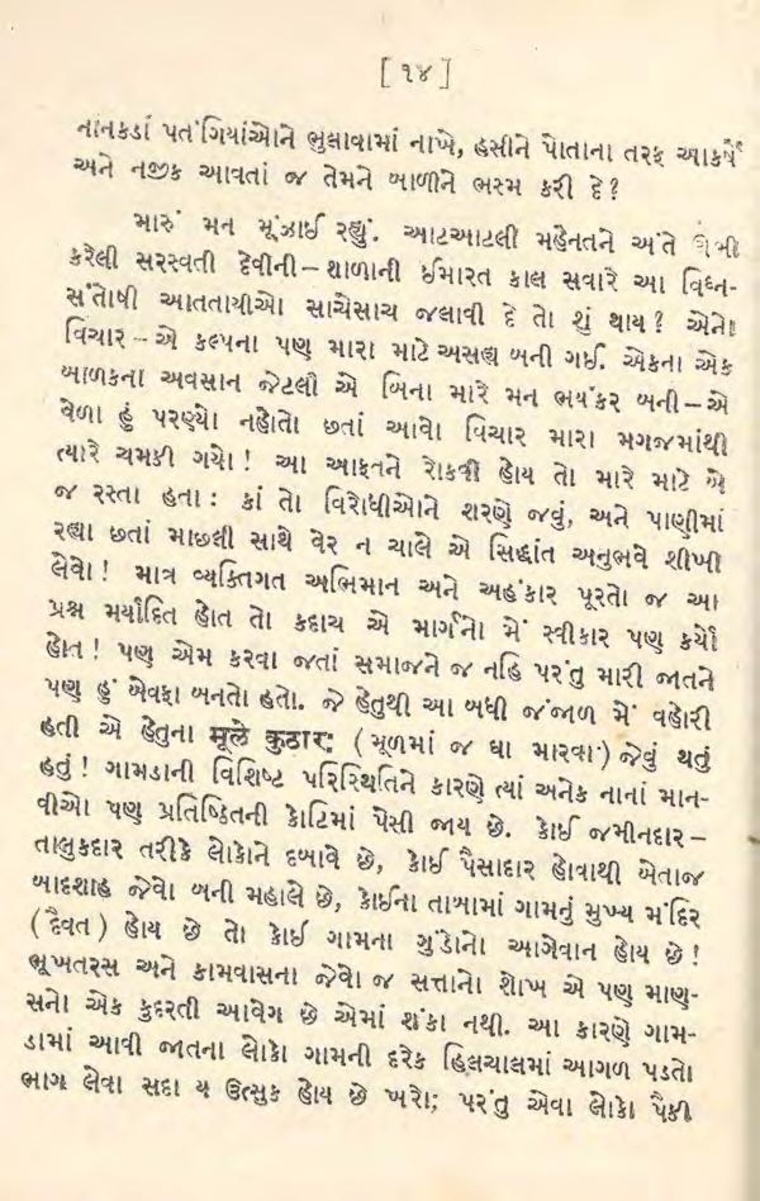 [ ૧૪ ]
નાનકડાં પતંગિયાંઓને ભુલાવામાં નાખે, હસીને પોતાના તરફ આકર્ષે
અને નજીક આવતાં જ તેમને બાળીને ભસ્મ કરી દે?
મારું મન મૂંઝાઈ રહ્યું. આટઆટલી મહેનતને અંતે ઊભી
કરેલી સરસ્વતી દેવીની – શાળાની ઈમારત કાલ સવારે આ વિઘ્ન-
સંતોષી આતતાયીઓ સાચેસાચ જલાવી દે તો શું થાય? એનો
વિચાર – એ કલ્પના પણ મારા માટે અસહ્ય બની ગઈ. એકના એક
બાળકના અવસાન જેટલી એ બિના મારે મન ભયંકર બની – એ
વેળા હું પરણ્યો નહોતો છતાં આવો વિચાર મારા મગજમાંથી
ત્યારે ચમકી ગયો! આ આફતને રોકવી હોય તો મારે માટે બે
જ રસ્તા હતા: કાં તો વિરોધીઓને શરણે જવું, અને પાણીમાં
રહ્યા છતાં માછલી સાથે વેર ન ચાલે એ સિદ્ધાંત અનુભવે શીખી
લેવો! માત્ર વ્યક્તિગત અભિમાન અને અહંકાર પૂરતો જ આ
પ્રશ્ન મર્યાદિત હોત તો કદાચ એ માર્ગનો મેં સ્વીકાર પણ કર્યો
હોત! પણ એમ કરવા જતાં સમાજને જ નહિ પરંતુ મારી જાતને
પણ હું બેવફા બનતો હતો. જે હેતુથી આ બધી જંજાળ મેં વહોરી
હતી એ હેતુના मूले कुठारः (મૂળમાં જ ઘા મારવા) જેવું થતું
હતું! ગામડાની વિશિષ્ટ પરિસ્થિતિને કારણે ત્યાં અનેક નાનાં માન-
વીઓ પણ પ્રતિષ્ઠિતની કોટિમાં પેસી જાય છે. કોઈ જમીનદાર –
તાલુકદાર તરીકે લોકોને દબાવે છે, કોઈ પૈસાદાર હોવાથી બેતાજ
બાદશાહ જેવો બની મહાલે છે, કોઈના તાબામાં ગામનું મુખ્ય મંદિર
(દૈવત) હોય છે તો કોઈ ગામના ગુંડોનો આગેવાન હોય છે!
ભૂખતરસ અને કામવાસના જેવો જ સત્તાનો શોખ એ પણ માણ-
સનો એક કુદરતી આવેગ છે એમાં શંકા નથી. આ કારણે ગામ-
ડામાં આવી જાતના લોકો ગામની દરેક હિલચાલમાં આગળ પડતો
ભાગ લેવા સદા ય ઉત્સુક હોય છે ખરો; પરંતુ એવા લોકો પૈકી